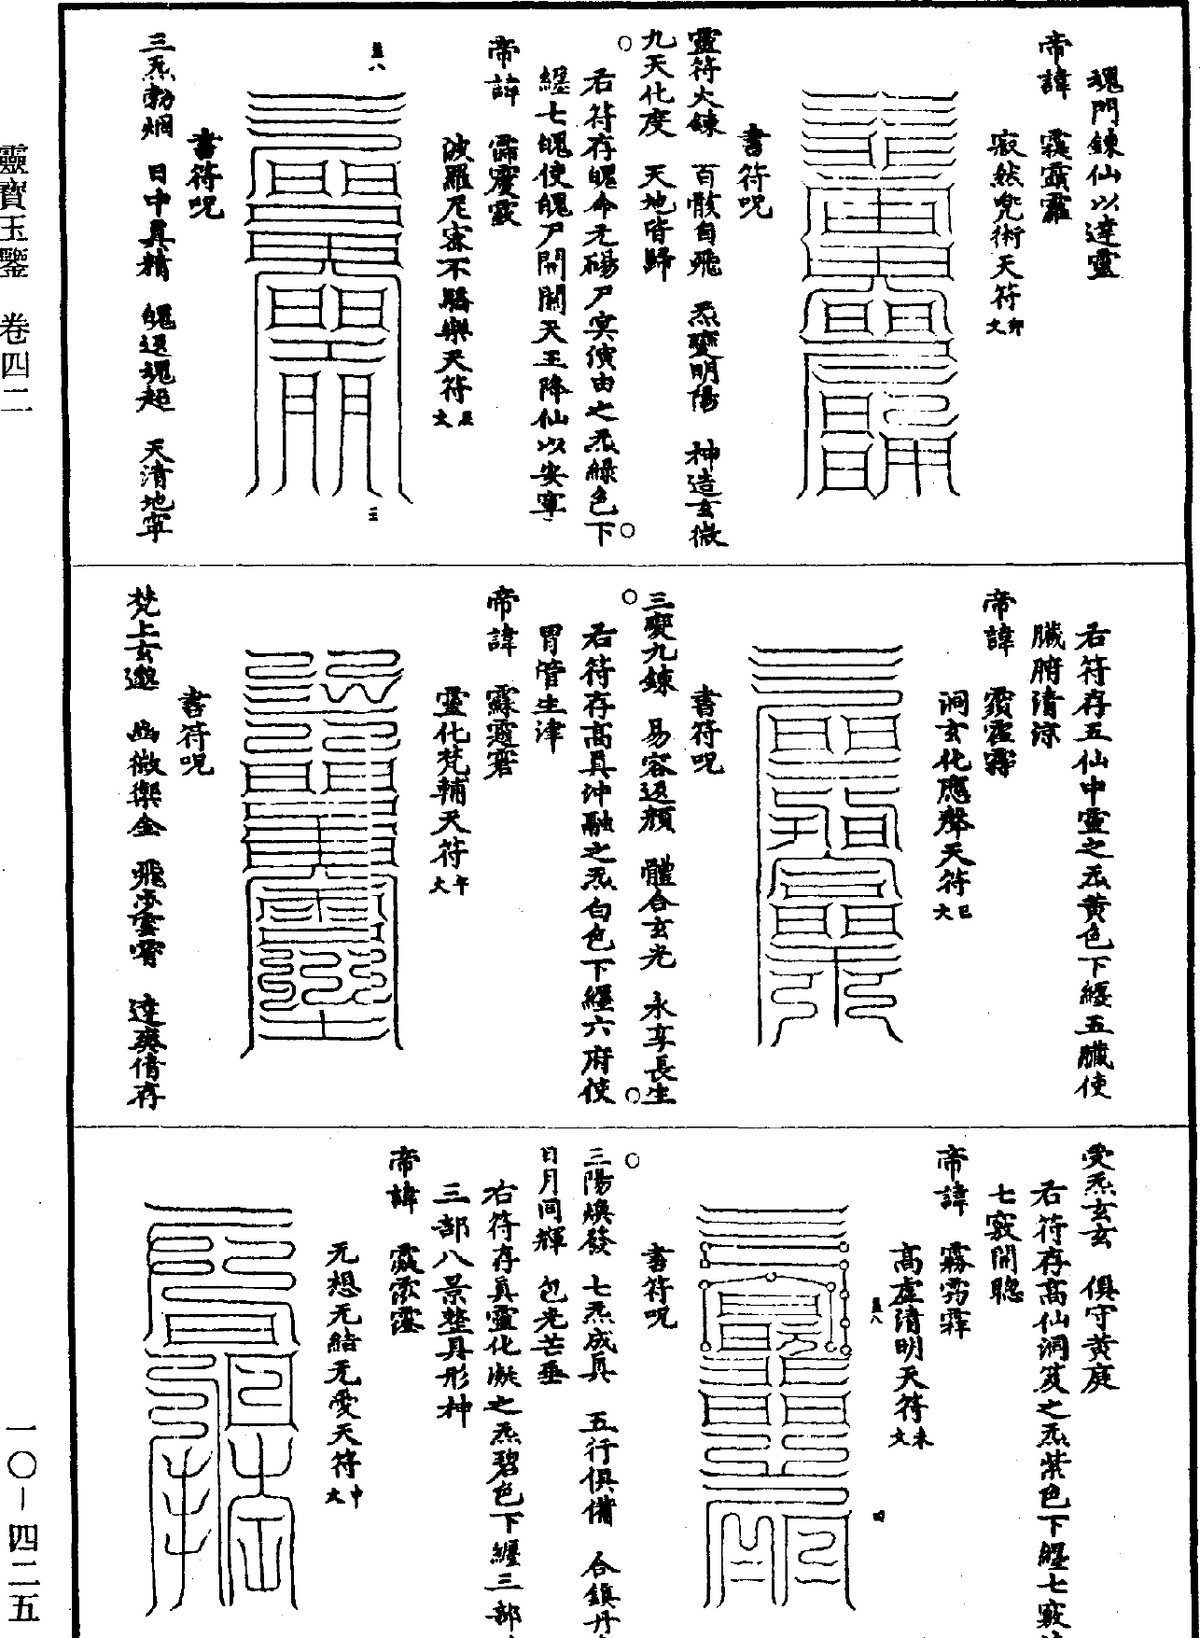 魂門鍊仙以達靈
帝諱
寂然兜術天符
卯文
書符呪
靈符火鍊 百骸自飛 炁變明陽 神造玄微
九天化度 天地皆歸
右符存魄命元碭尸冥演由之炁綠色下
纏七魄使魄尸開關天王降仙以安寧
帝諱
波羅尼密不驕樂天符
辰文
書符呪
三炁勃烟 日中真精 魄返魂超 天清地寧
右符存五仙中靈之炁黃色下纏五臟使
臟腑清涼
帝諱
洞玄化應聲天符
巳文
書符呪
三變九鍊 易容返顏 體合玄光 永享長生
右符存高真沖融之炁白色下纏六府使
胃管生津
帝諱
靈化梵輔天符
午文
書符呪
梵上玄邈 幽微禦金 飛步雲霄 達爽倩存
受炁玄玄 俱守黃庭
右符存高仙洞笈之炁紫色下纏七竅
七竅開聰
帝諱
高虛清明天符
未文
書符呪
三陽煥發 七炁成真 五行俱備 合鎮丹
日月同輝 包光芒垂
右符存真靈化凝之炁碧色下纏三部
三部八景整具形神
帝諱
无想无結无愛天符
申文
靈寶玉鑒 卷四二
一〇－四二五